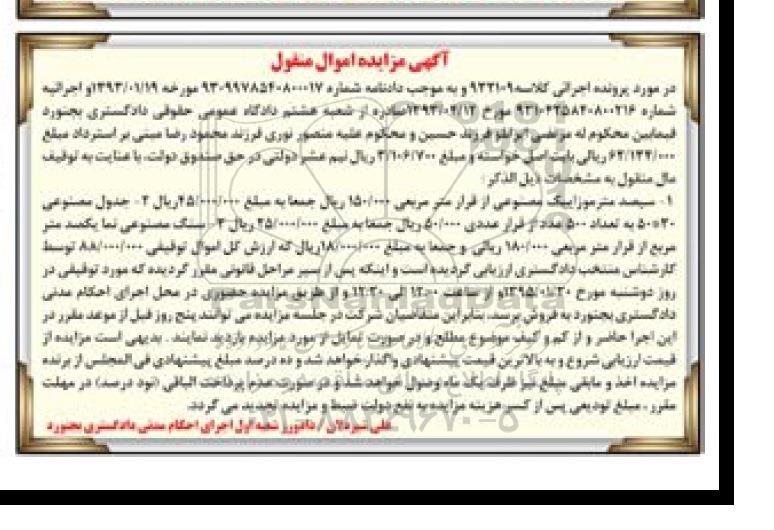 آگهی مزایده اموال منقول
در مورد پرونده اجرائی کلاسه ۹۳۳۱۰۹ و به موجب دادنامه شماره ۹۳۰۹۹۷۸۵۴۰۸۰۰۰۱۷ مورخه ۱۳۹۳/۰۱/۱۹ و اجرائیه
شماره ۹۳۱۰۴۲۵۸۴۰۸۰۰۲۱۶ مورخ ۱۳۹۳/۰۲/۱۳ صادره از شعبه هشتم دادگاه عمومی حقوقی دادگستری بجنورد
فیمابین محکوم له مرتضی ایرانلو فرزند حسین و محکوم علیه منصور نوری فرزند محمود رضا مبنی بر استرداد مبلغ
۶۲/۱۳۴/۰۰۰ ریالی بابت اصل خواسته و مبلغ ۳/۱۰۶/۷۰۰ ریال نیم عشر دولتی در حق صندوق دولت، با عنایت به توقیف
مال منقول به مشخصات ذیل الذکر :
۱- سیصد مترموزاییک مصنوعی از قرار متر مربعی ۱۵۰/۰۰۰ ریال جمعا به مبلغ ۴۵/۰۰۰/۰۰۰ریال ۲- جدول مصنوعی
۳۰*۵۰ به تعداد ۵۰۰ عدد از قرار عددی ۵۰/۰۰۰ ریال جمعا به مبلغ ۲۵/۰۰۰/۰۰۰ ریال ۳- سنگ مصنوعی نما یکصد متر
مربع از قرار متر مربعی ۱۸۰/۰۰۰ ریالی و جمعا به مبلغ ۱۸/۰۰۰/۰۰۰ریال که ارزش کل اموال توقیفی ۸۸/۰۰۰/۰۰۰ توسط
کارشناس منتخب دادگستری ارزیابی گردیده است و اینکه پس از سیر مراحل قانونی مقرر گردیده که مورد توقیفی در
روز دوشنبه مورخ ۱۳۹۵/۰۱/۳۰ از ساعت ۱۲:۰۰ الی ۱۲:۳۰ و از طریق مزایده حضوری در محل اجرای احکام مدنی
دادگستری بجنورد به فروش برسد. بنابراین متقاضیان شرکت در جلسه مزایده می توانند پنج روز قبل از موعد مقرر در
این اجرا حاضر و از کم و کیف موضوع مطلع و در صورت تمایل از مورد مزایده بازدید نمایند . بدیهی است مزایده از
قیمت ارزیابی شروع و به بالاترین قیمت پیشنهادی واگذار خواهد شد و ده درصد مبلغ پیشنهادی فی المجلس از برنده
مزایده اخذ و مابقی مبلغ نیز ظرف یک ماه وصول خواهد شد و در صورت عدم پرداخت الباقی (نود درصد) در مهلت
مقرر ، مبلغ تودیعی پس از کسر هزینه مزایده به نفع دولت ضبط و مزایده تجدید می گردد.
علی شیردلان / دادورز شعبه اول اجرای احکام مدنی دادگستری بجنورد
ParsNamadData